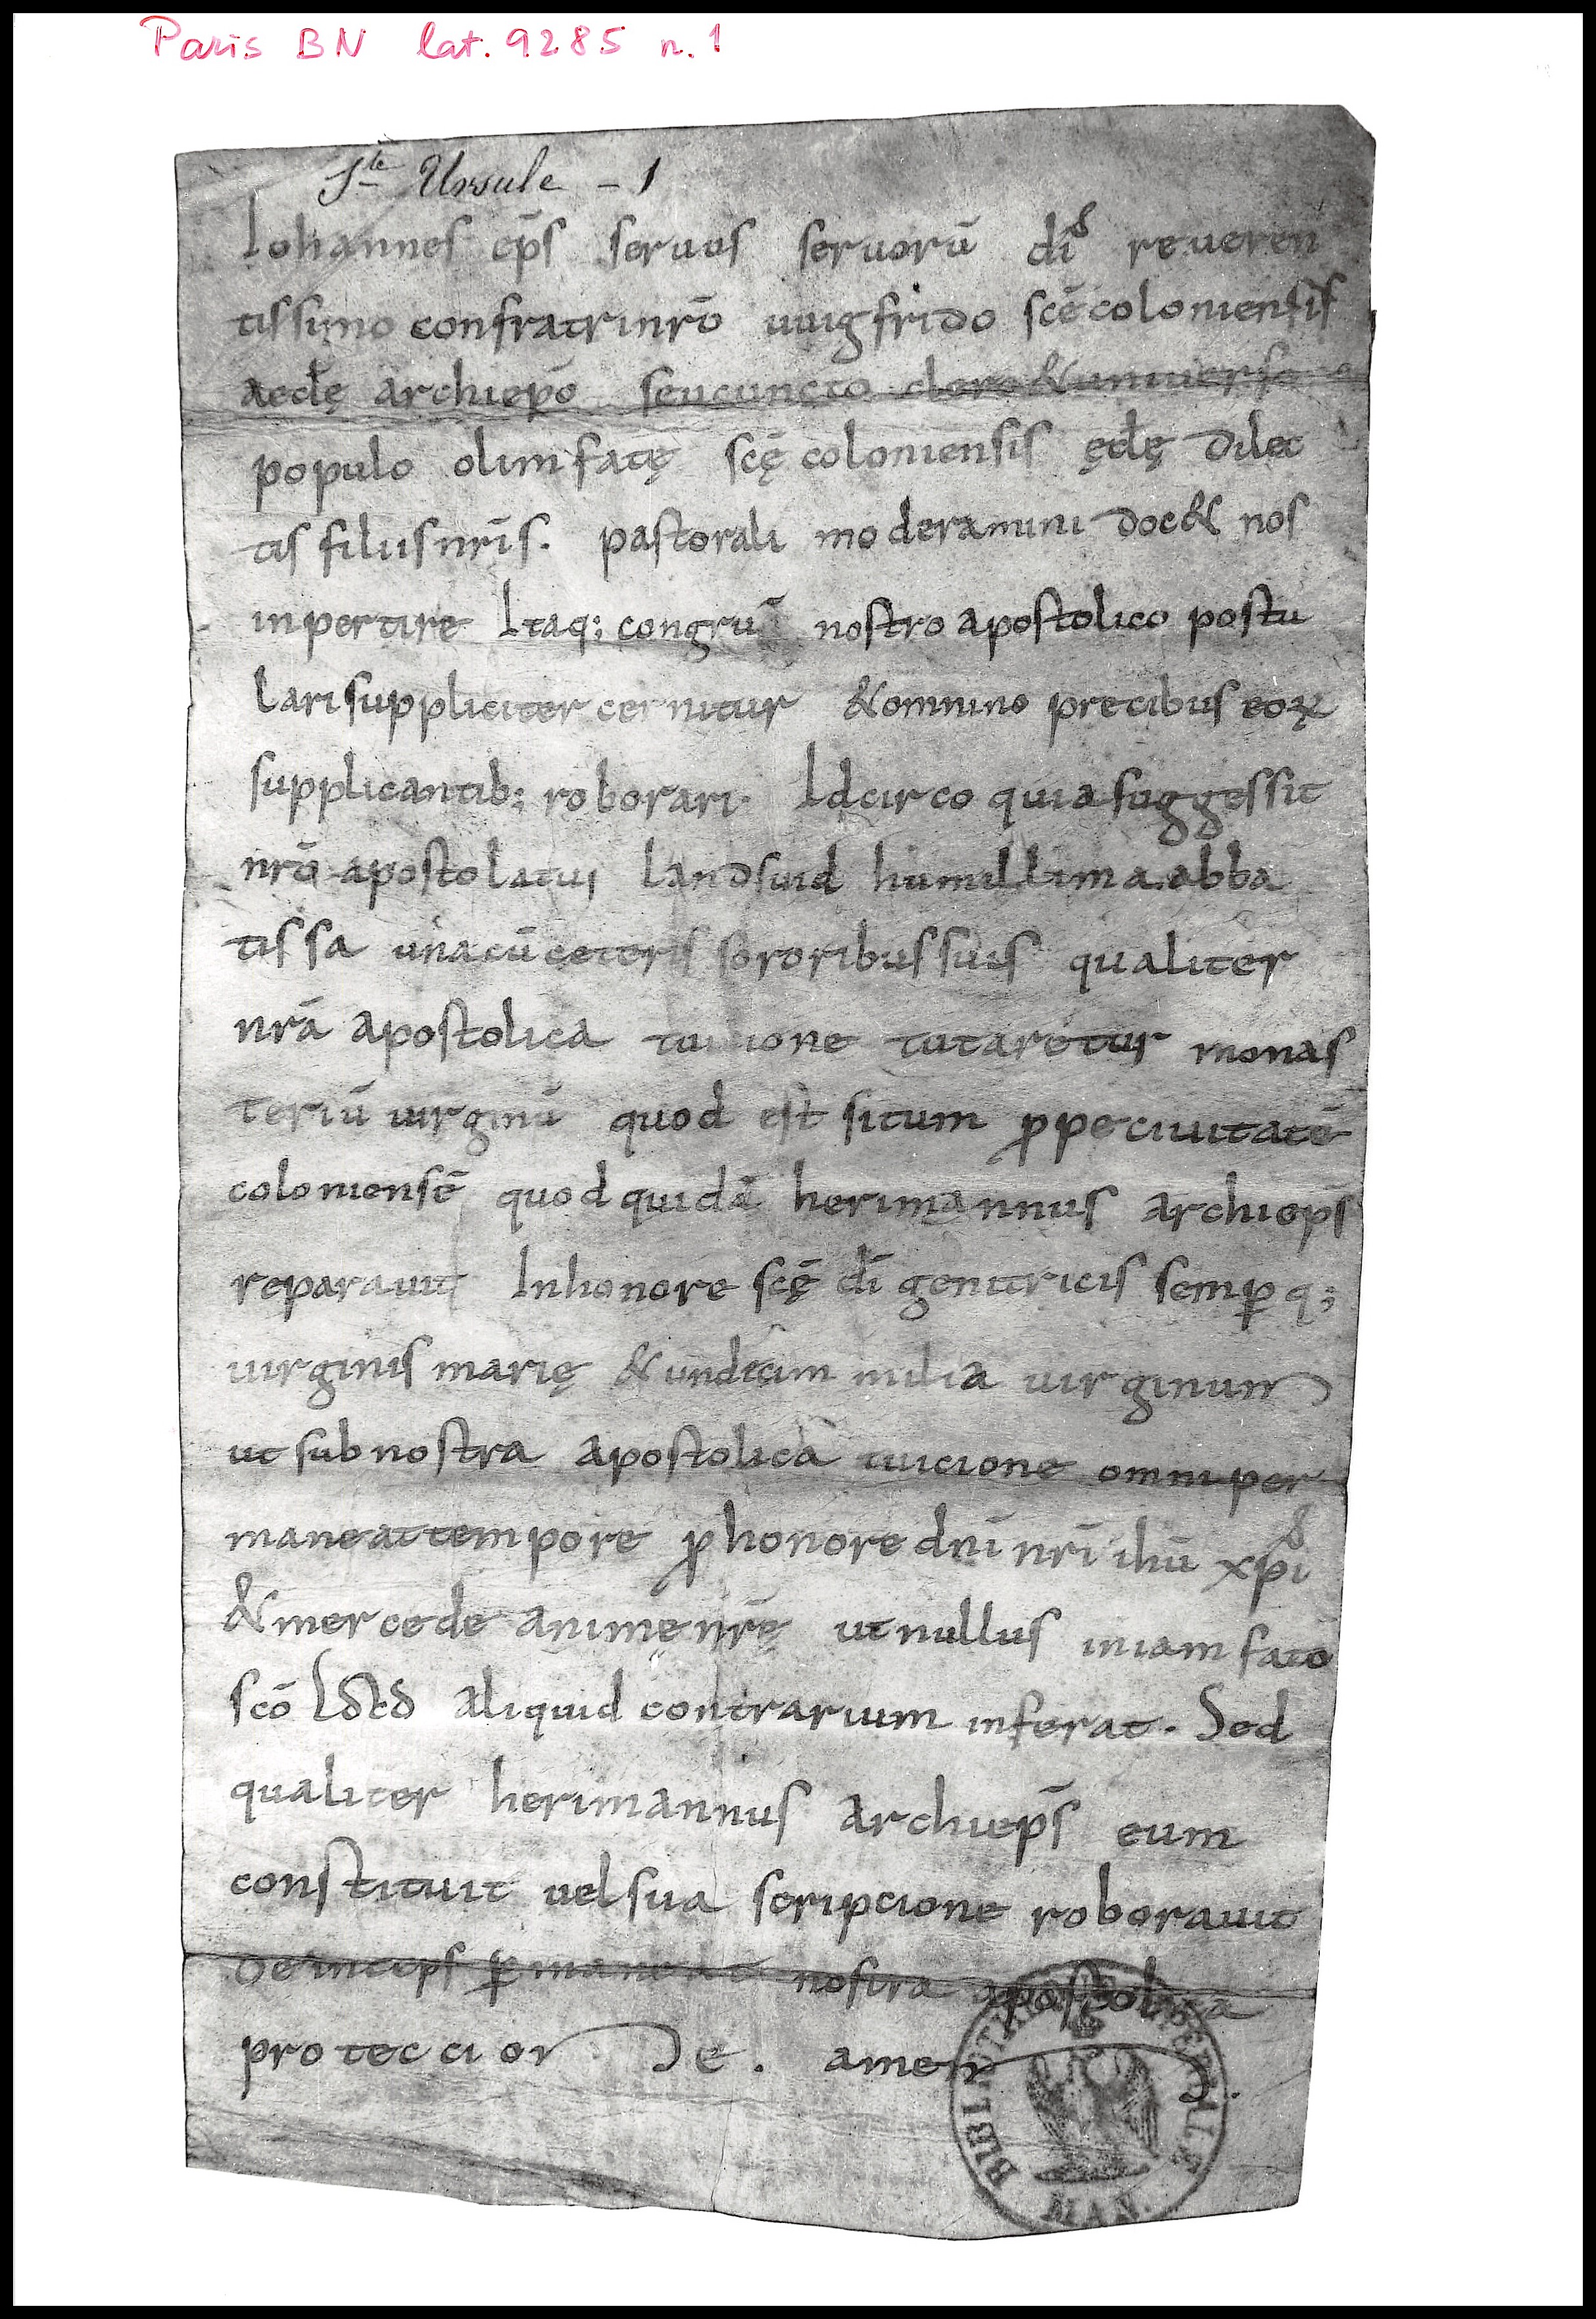 Paris BN lat. 9285 n. 1
Ste Ursule - 1
Iohannes ep̄s seruus seruorū dī reueren
tissimo confratri nrō uuigfrido scē coloniensis
aeclę archiep̄o seu cuncto clero & uniuerso
populo olim fatę scę̄ coloniensis ęclę dilec
tis filiis nrīs. pastorali moderamini doc& nos
inpertire Itaq; congruū nostro apostolico postu
lari suppliciter cernitur & omnino precibus eoꝝ
supplicantib; roborari. Idcirco quia suggessit
nrō apostolatui landsuid humillima abba
tissa una cū ceteris sororibus suis qualiter
nrā apostolica tuicione tutaretur monas
teriū uirginū quod est situm ꝓpe ciuitatē
coloniensē quod quidā herimannus archiep̄s
reparauit In honore scę̄ dī genitricis semꝑq;
uirginis marię & undecim milia uirginum
ut sub nostra apostolica tuicione omni per
maneat tempore ꝓ honore dnī nrī ihū xp̄i
& mercede animę nrę̄ ut nullus in iam fato
scō loco aliquid contrarium inferat. Sed
qualiter herimannus archiep̄s eum
constituit uel sua scripcione roborauit
deinceps ꝑmaneat nostra apostolica
proteccione. amen.
BIBLIOTHÈQUE IMPÉRIALE
MAN.